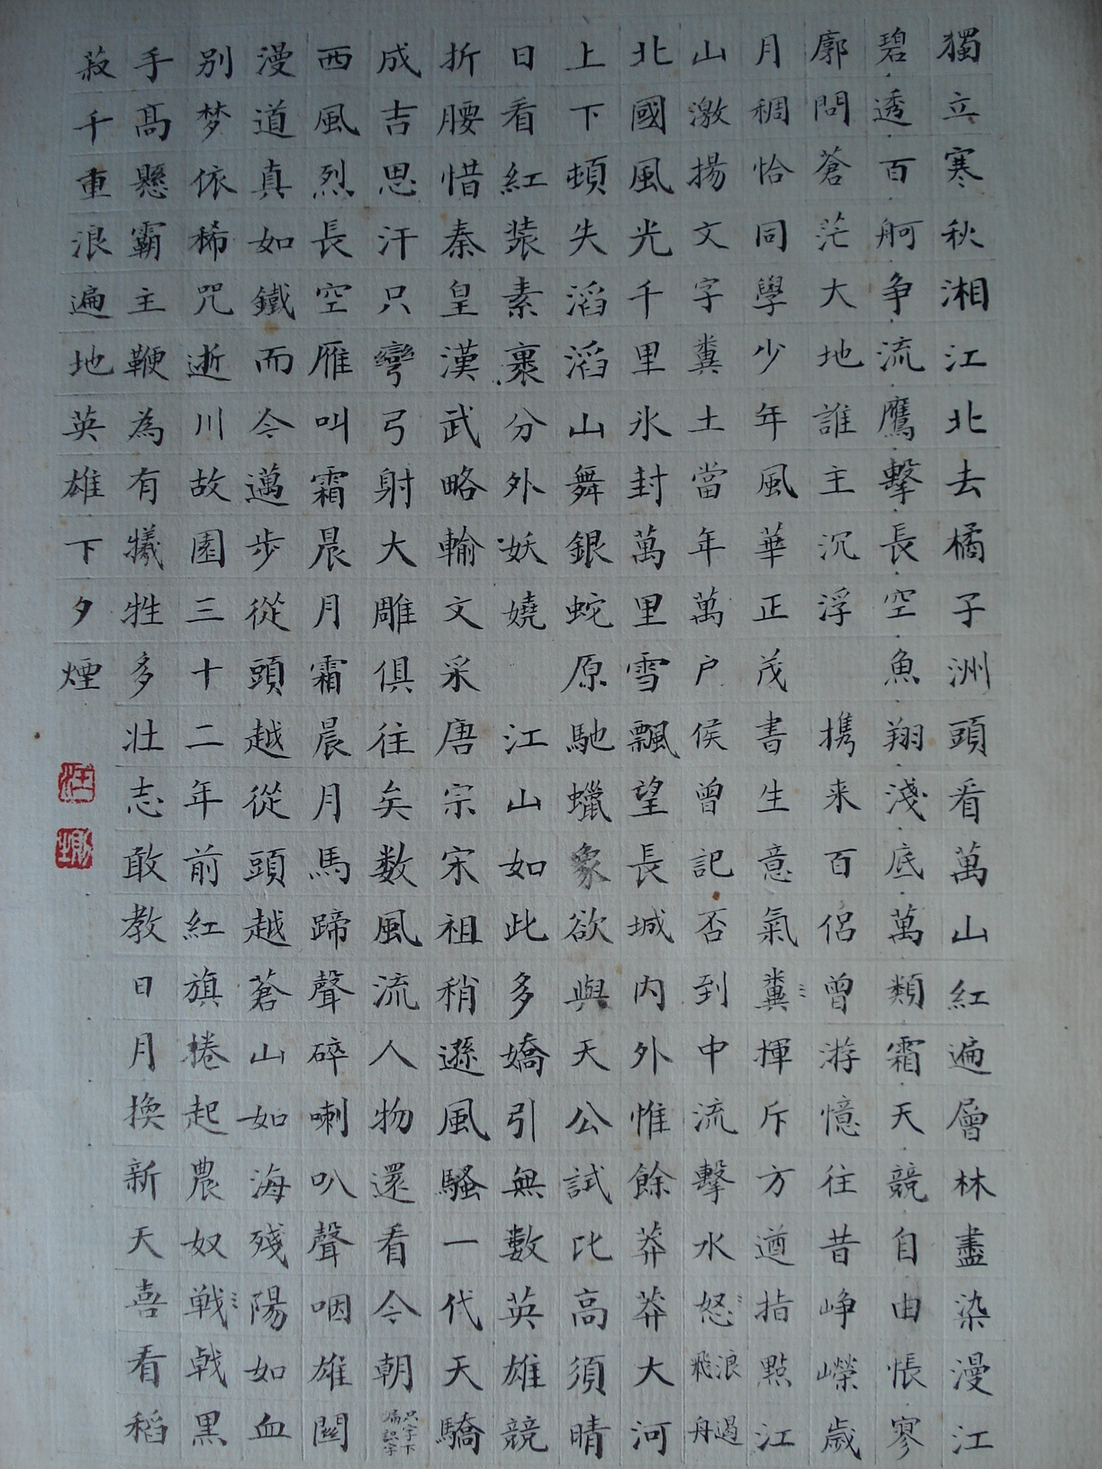 獨立寒秋湘江北去橘子洲頭看萬山紅遍層林盡染漫江
碧透百舸争流鷹擊長空魚翔淺底萬類霜天競自由悵寥
廓問蒼茫大地誰主沉浮 携来百侣曾游憶往昔峥嶸歲
月稠恰同學少年風華正茂書生意氣糞揮斥方遒指點江
山激揚文字糞土當年萬户侯曾記否到中流擊水怒浪遏飛舟
北國風光千里氷封萬里雪飄望長城内外惟餘莽莽大河
上下頓失滔滔山舞銀蛇原馳蠟象欲與天公試比高須晴
日看紅装素裹分外妖嬈 江山如此多嬌引無數英雄競
折腰惜秦皇漢武略輸文采唐宗宋祖稍遜風騷一代天驕
成吉思汗只彎弓射大雕俱往矣数風流人物還看今朝 只字下漏識字
西風烈長空雁叫霜晨月霜晨月馬蹄聲碎喇叭聲咽雄關
漫道真如鐵而今邁步從頭越從頭越蒼山如海殘陽如血
别梦依稀咒逝川故園三十二年前紅旗捲起農奴戦戟黑
手高懸霸主鞭為有犧牲多壮志敢教日月換新天喜看稻
菽千重浪遍地英雄下夕煙